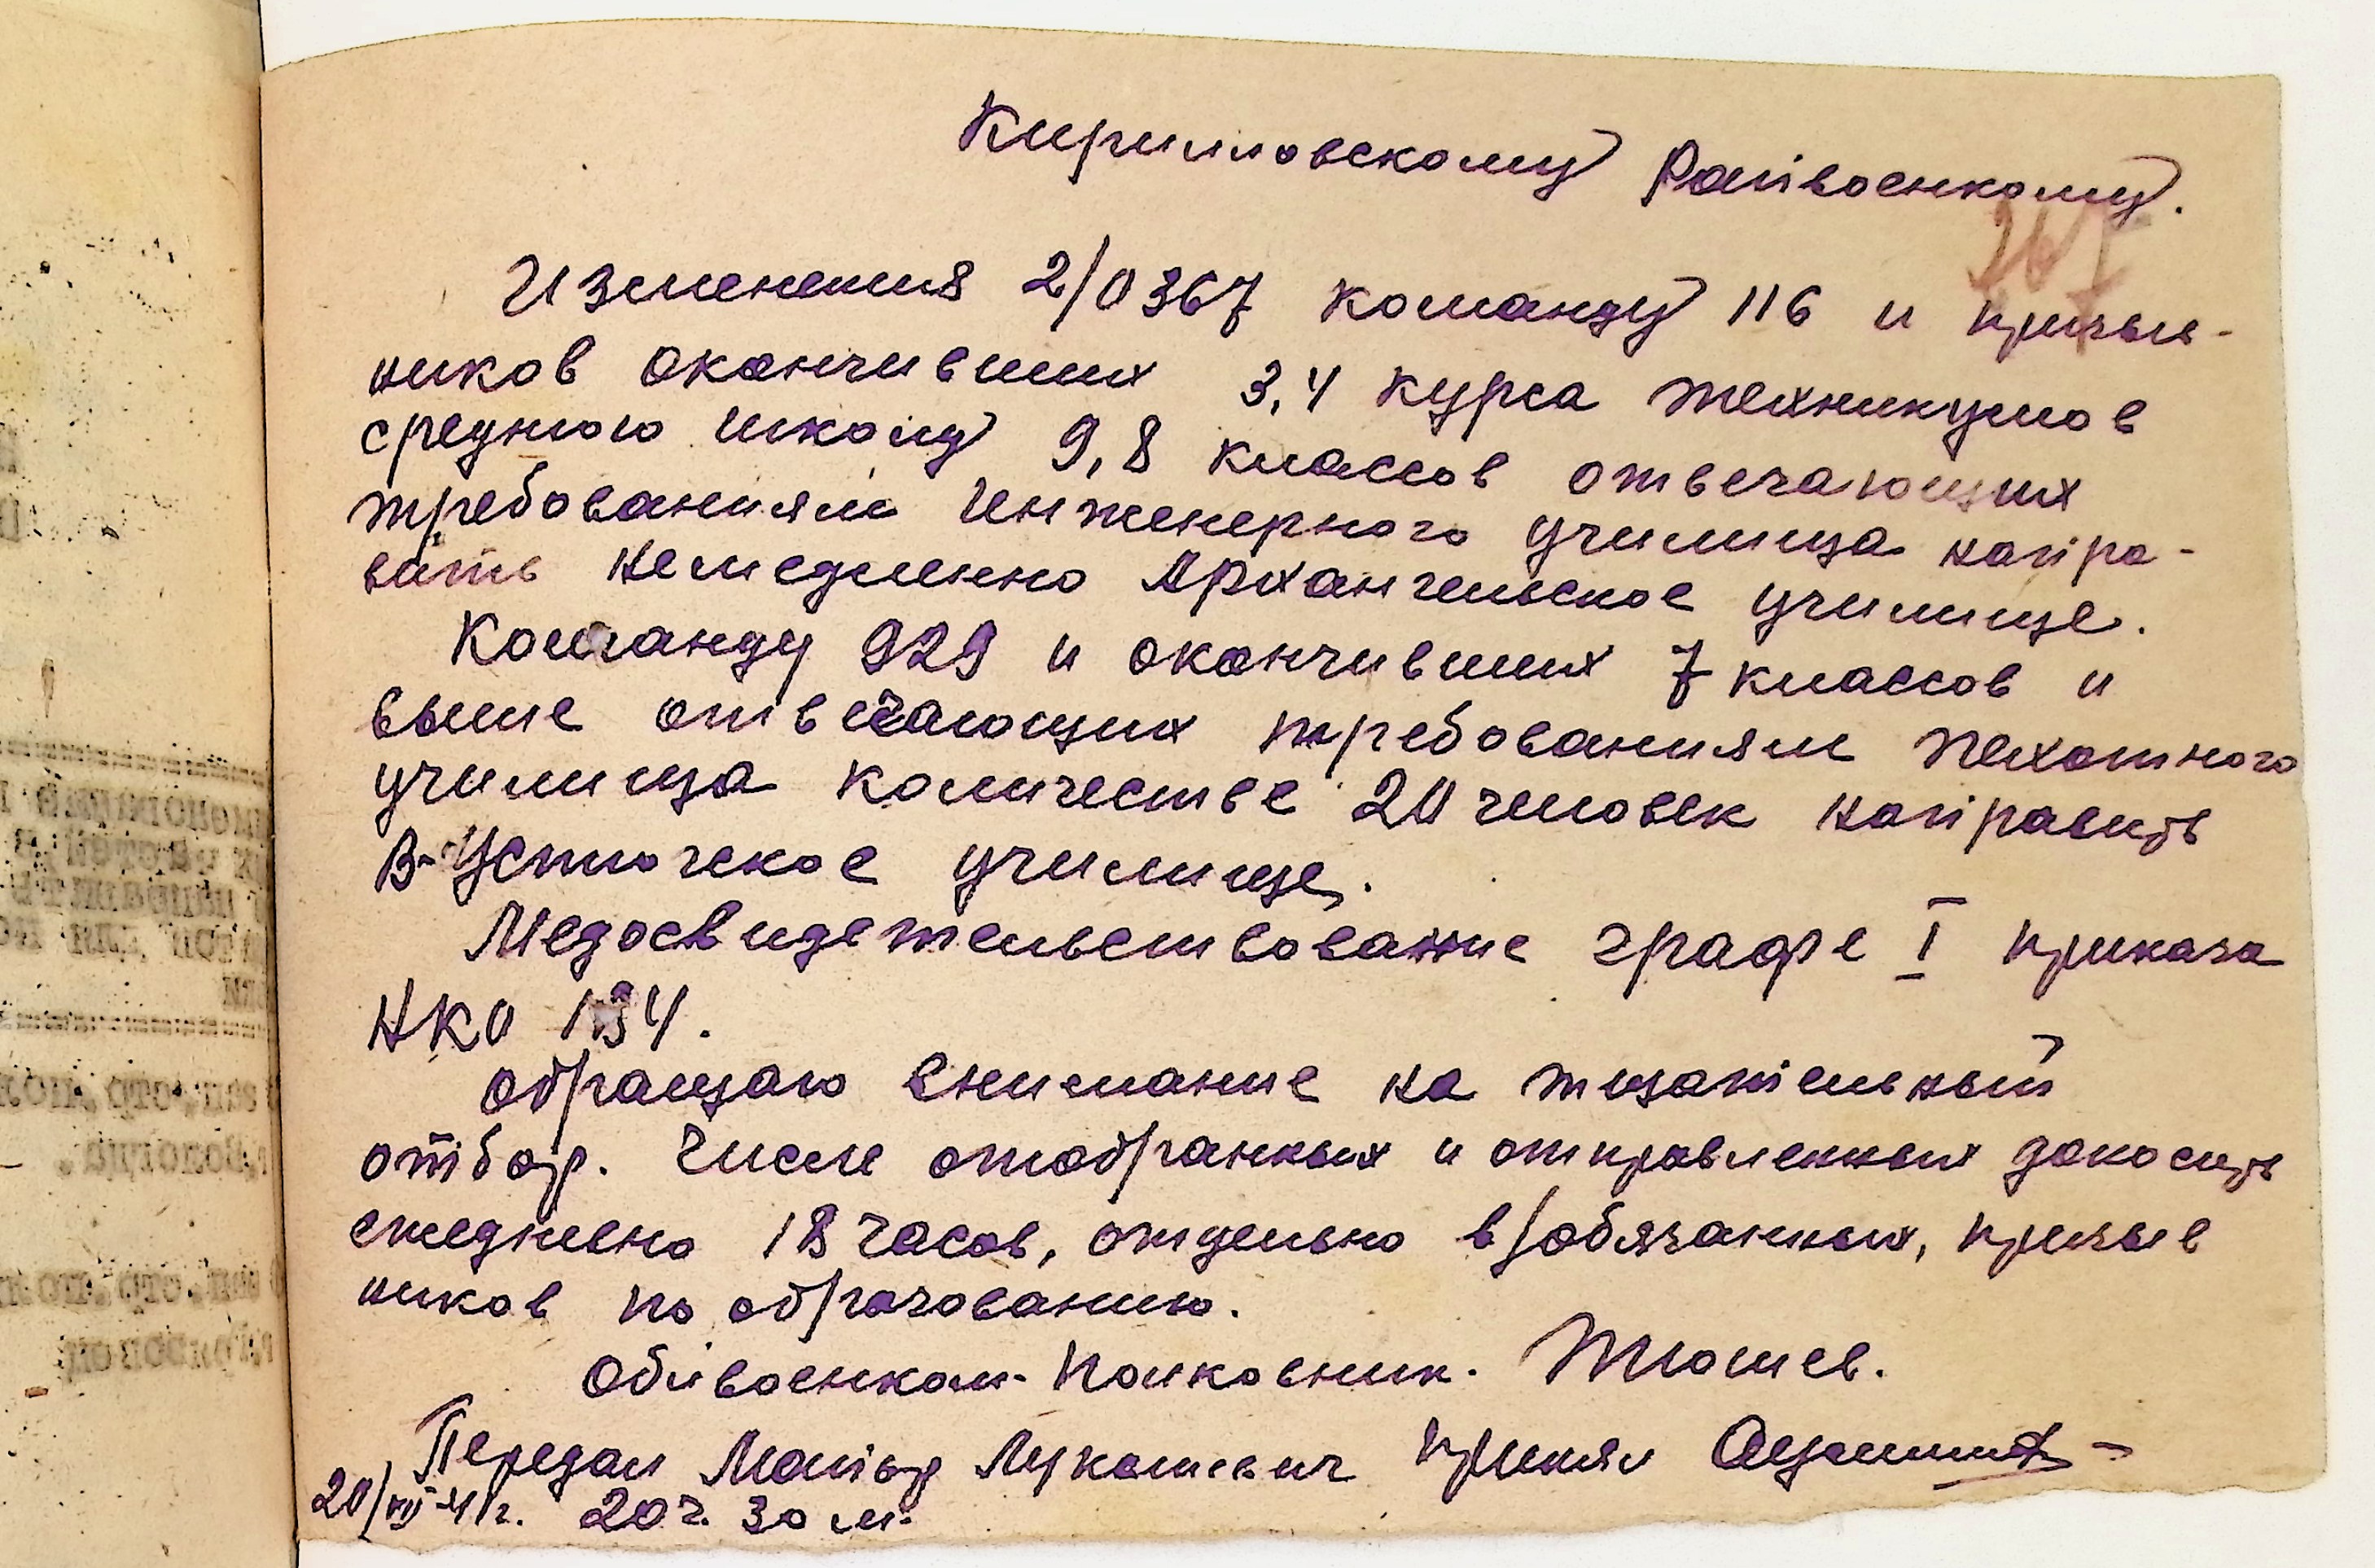 Кирилловскому Райвоенкому.
Изменения 2/0367 команду 116 и призыв-
ников окончивших 3,4 курса техникумов
среднюю школу 9,8 классов отвечающих
требованиям Инженерного училища напра-
вить немедленно Архангельское училище.
Команду 929 и окончивших 7 классов и
выше отвечающих требованиям пехотного
училища количестве 20 человек направить
В-Устюгское училище.
Медосвидетельствование графе I приказа
НКО 184.
Обращаю внимание на тщательный
отбор. Числе отобранных и отправленных доносить
ежедневно 18 часов, отдельно в/обязанных, призыв
ников по образованию.
Облвоенком- Полковник. Тюшев.
Передал Майор Лукашевич принял
20/VII-41 г. 20 ч. 30 м.